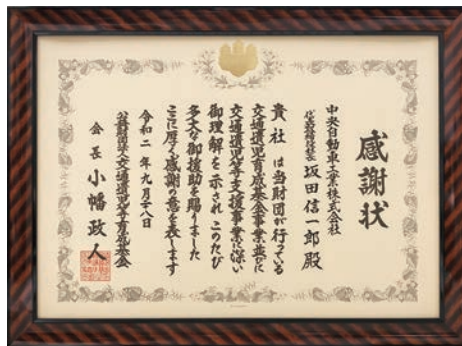 感謝状
中央自動車工業株式会社
代表取締役社長 坂田信一郎 殿
貴社は当財団が行っている
交通遺児育成基金事業並びに
交通遺児等支援事業に深い
御理解を示されこのたび
多大な御援助を賜りました
ここに厚く感謝の意を表します
令和二年九月二十八日
公益財団法人交通遺児等育成基金
会長 小幡政人